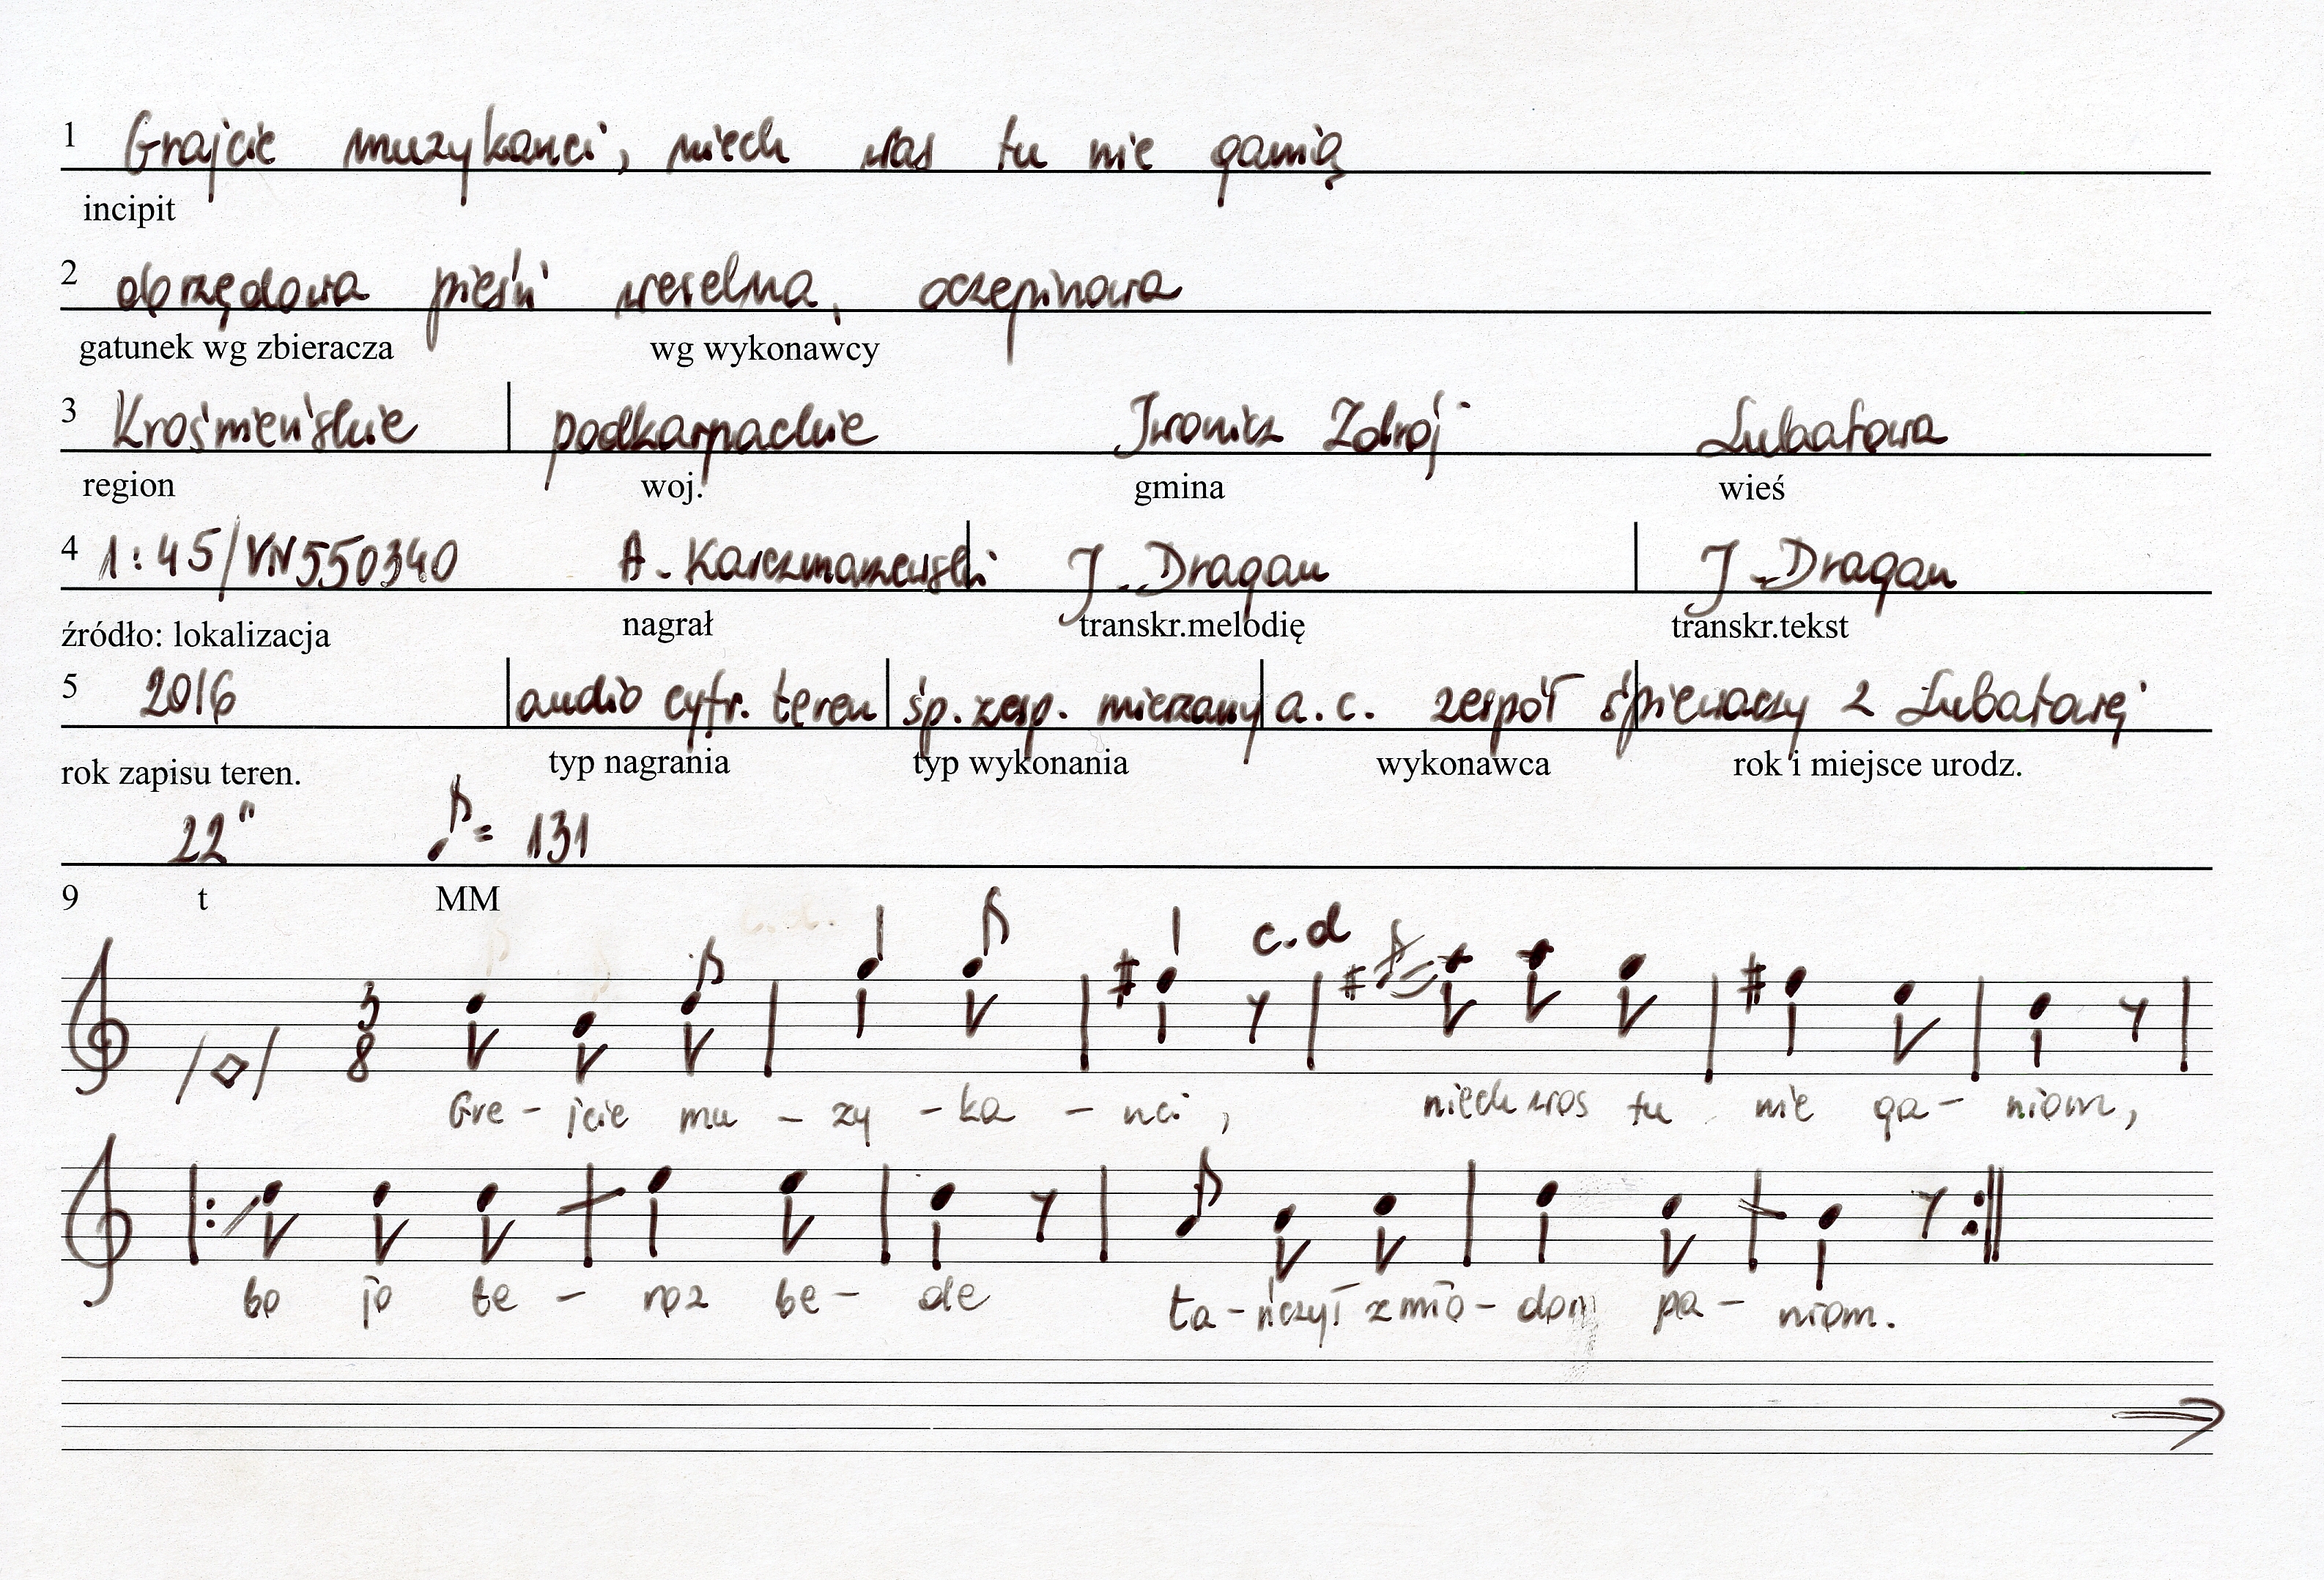 1 Grajcie muzykanci, niech was tu nie ganią
incipit
2 obrzędowa pieśń weselna, oczepinowa
gatunek wg zbieracza wg wykonawcy
3 Krośnieńskie podkarpackie Iwonicz Zdrój Lubatowa
region woj. gmina wieś
4 1:45/VN550340 A. Karczmarzewski J. Dragan J. Dragan
źródło: lokalizacja nagrał transkr.melodię transkr.tekst
5 2016 audio cyfr. teren śp. zesp. mieszany a.c. zespół śpiewaczy z Lubatowej
rok zapisu teren. typ nagrania typ wykonania wykonawca rok i miejsce urodz.
22" ♪ = 131
9 t MM
c.d
3
8
Gre - jcie mu - zy - ka - nci, niech was tu nie ga - niom,
bo jo te - roz be - de ta - ńczył z mło - dom pa - niom.